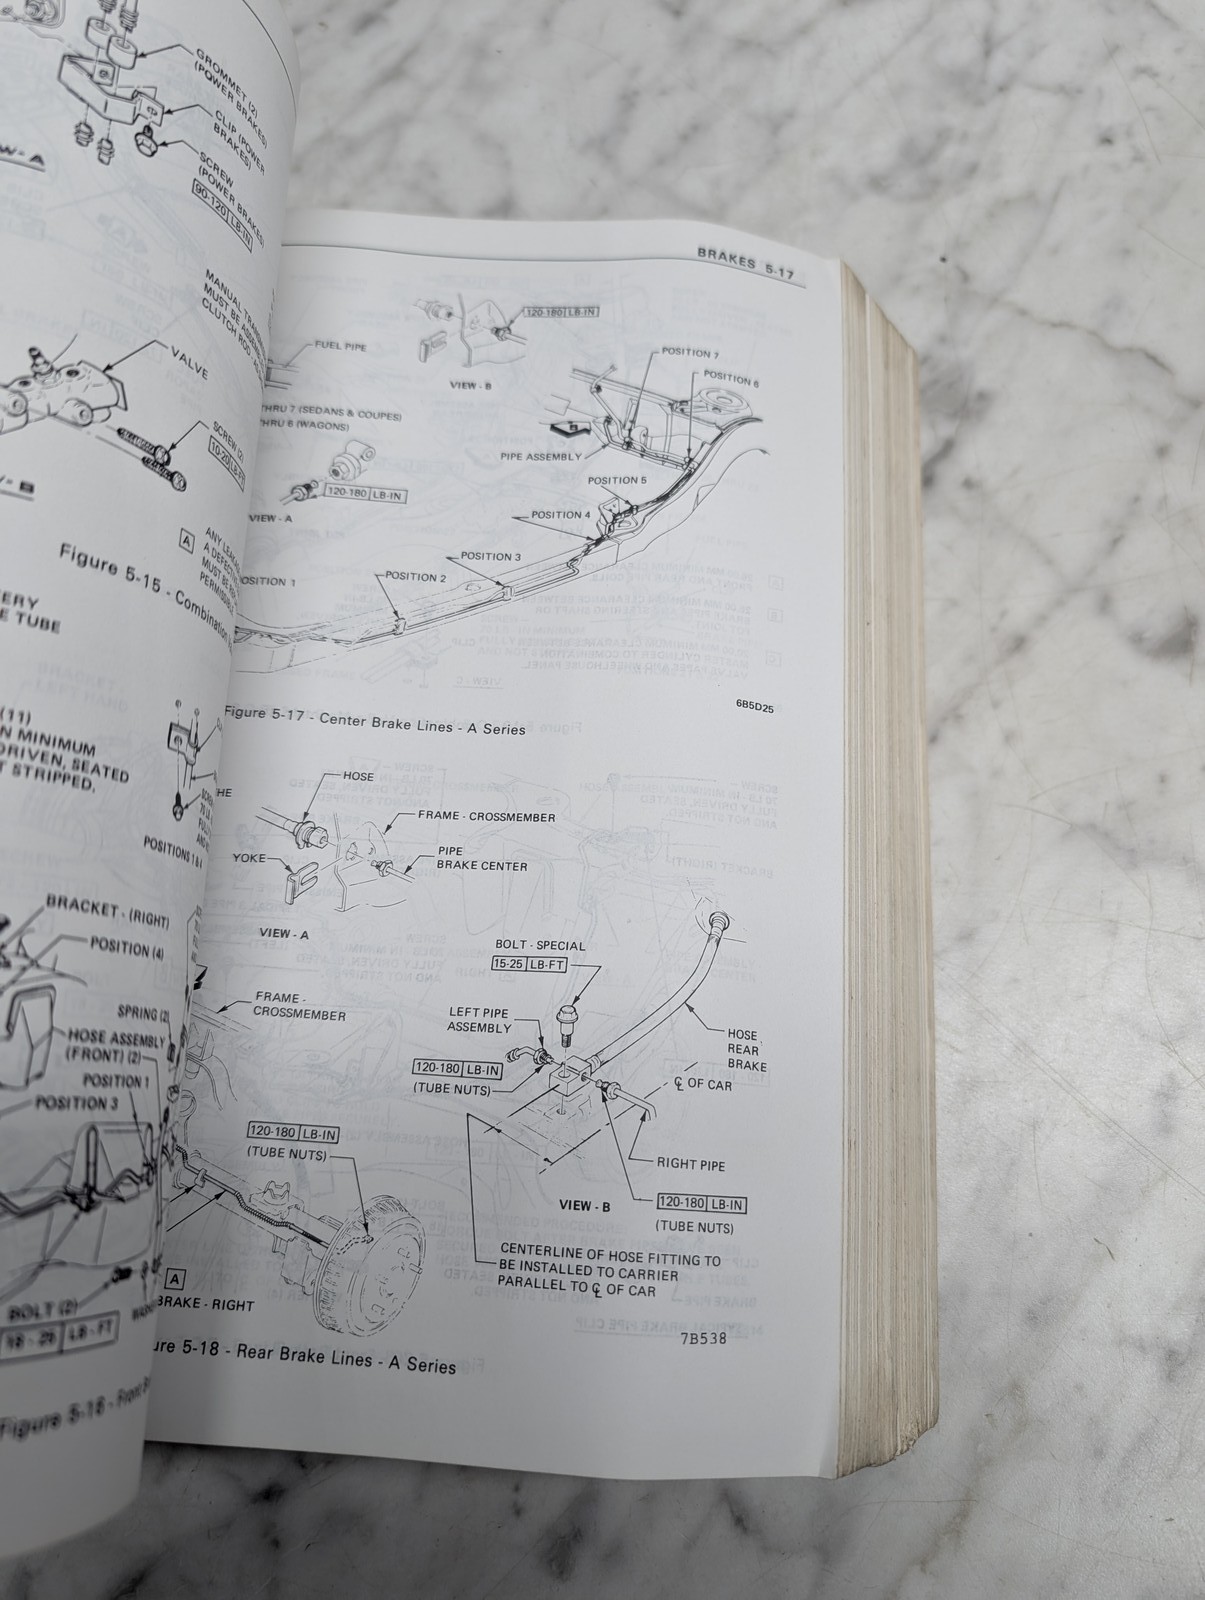 GROMMET (2)
(POWER BRAKES)
CLIP (POWER
BRAKES)
SCREW
(POWER BRAKES)
90-120 LB-IN
W-A
MANUAL
MUST BE
CLUTCH ROD
VALVE
SCREW (2)
10-25 LB-FT
A
ANY
A
MUST BE
Figure 5-15 - Combination
TUBE
(11)
MINIMUM
DRIVEN, SEATED
STRIPPED.
POSITIONS 1 & 4
BRACKET - (RIGHT)
POSITION (4)
SPRING (2)
HOSE ASSEMBLY
(FRONT) (2)
POSITION 1
POSITION 3
BOLT (2)
LB-FT
Figure 5-16 - Front
BRAKES 5-17
120-180 LB-IN
FUEL PIPE
VIEW - B
POSITION 7
POSITION 6
THRU 7 (SEDANS & COUPES)
THRU 6 (WAGONS)
PIPE ASSEMBLY
120-180 LB-IN
VIEW - A
POSITION 5
POSITION 4
POSITION 3
POSITION 2
POSITION 1
6B5D25
Figure 5-17 - Center Brake Lines - A Series
HOSE
FRAME - CROSSMEMBER
YOKE
PIPE
BRAKE CENTER
VIEW - A
BOLT - SPECIAL
15-25 LB-FT
FRAME -
CROSSMEMBER
LEFT PIPE
ASSEMBLY
HOSE
REAR
BRAKE
120-180 LB-IN
(TUBE NUTS)
℄ OF CAR
120-180 LB-IN
(TUBE NUTS)
RIGHT PIPE
VIEW - B
120-180 LB-IN
(TUBE NUTS)
CENTERLINE OF HOSE FITTING TO
BE INSTALLED TO CARRIER
PARALLEL TO ℄ OF CAR
A
BRAKE - RIGHT
7B538
5-18 - Rear Brake Lines - A Series